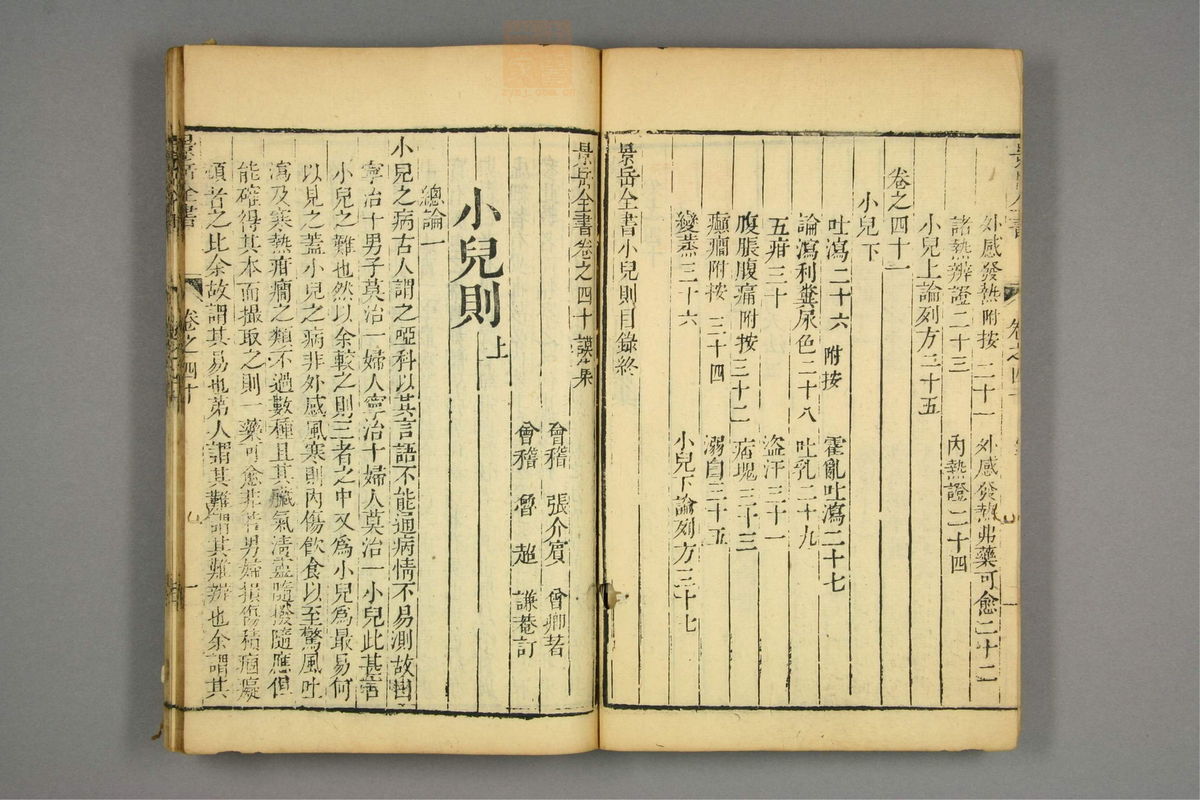 外感發熱附按 二十一 外感發熱弗藥可愈二十二
諸熱辨證二十三 內熱證二十四
小兒上論列方二十五
卷之四十一
小兒下
吐瀉二十六 附按 霍亂吐瀉二十七
論瀉利糞尿色二十八 吐乳二十九
五疳三十 盜汗三十一
腹脹腹痛附按三十二 痞塊三十三
癲癇附按 三十四 溺白三十五
變蒸三十六 小兒下論列方三十七
景岳全書小兒則目錄終
景岳全書卷之四十謨集
會稽 張介賓 會卿著
會稽 魯 超 謙菴訂
小兒則上
總論一
小兒之病古人謂之啞科以其言語不能通病情不易測故曰
寧治十男子莫治一婦人寧治十婦人莫治一小兒此甚言
小兒之難也然以余較之則三者之中又為小兒為最易何
以見之蓋小兒之病非外感風寒則內傷飲食以至驚風吐
瀉及寒熱疳癇之類不過數種且其臟氣清靈隨撥隨應但
能確得其本而撮取之則一藥可愈非若男婦損傷積痼癡
頑者之比余故謂其易也第人謂其難謂其難辨也余謂其
景岳全書 卷之四十 一